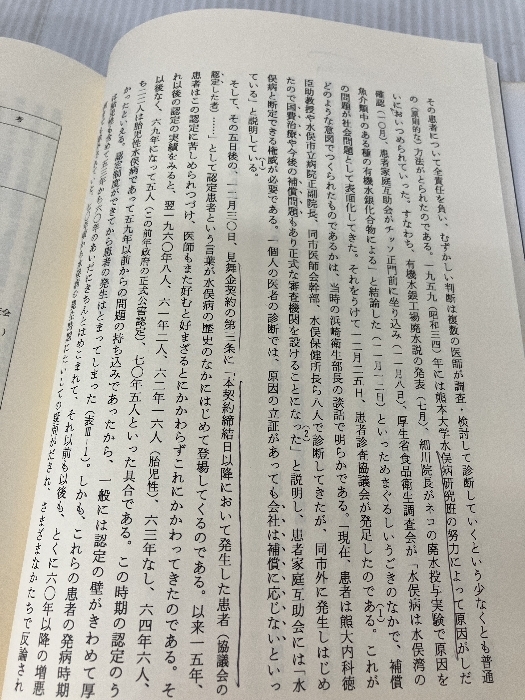 その患者について全責任を負い、むずかしい判断は複数の医師が調査・検討して診断していくという少なくとも普通
の（原則的な）方法がとられたのである。一九五九（昭和三四）年には熊本大学水俣病研究班の努力によって原因がしだ
いにおいつめられていった。すなわち、有機水銀工場廃水説の発表（七月）、細川院長がネコの廃水投与実験で原因を
確認（一〇月）、患者家庭互助会がチッソ正門前に坐り込み（一一月八日）、厚生省食品衛生調査会が「水俣病は水俣湾の
魚介類中のある種の有機水銀化合物による」と結論した（一一月一二日）といっためまぐるしいうごきのなかで、補償
の問題が社会問題として表面化してきた。それをうけて一二月二五日、患者診査協議会が発足したのである。これが
どのような意図でつくられたものであるかは、当時の浜崎衛生部長の談話で明らかである。「現在、患者は熊大内科徳
臣助教授や水俣市立病院正副院長、同市医師会幹部、水俣保健所長ら八人で診断してきたが、同市外に発生しはじめ
たので国費治療や今後の補償問題もあり正式な審査機関を設けることになった」と説明し、患者家庭互助会には「水
俣病と断定できる権威が必要である。一個人の医者の診断では、原因の立証があっても会社は補償に応じないといっ
ている」と説明している。
そして、その五日後の一二月三〇日、見舞金契約の第三条に「本契約締結日以降において発生した患者（協議会の
認定した者）……」として認定患者という言葉が水俣病の歴史のなかにはじめて登場してくるのである。以来一五年、
患者はこの認定に苦しめられつづけ、医師もまた好むと好まざるとにかかわらずこれにかかわってきたのである。そ
れ以後の認定の実績をみると、翌一九六〇年八人、六一年二人、六二年一六人（胎児性）、六三年なし、六四年六人、
以後なく、六九年になって五人（この前年政府の正式公害認定）、七〇年五人といった具合である。この時期の認定のう
ち二二人は胎児性水俣病であって五九年以前からの問題の持ち込みであったから、一般には認定の壁がきわめて厚
かったといえる。認定制度ができてから患者の発生はとまってしまった（表Ⅲ-1）。しかも、これらの患者の発病時期